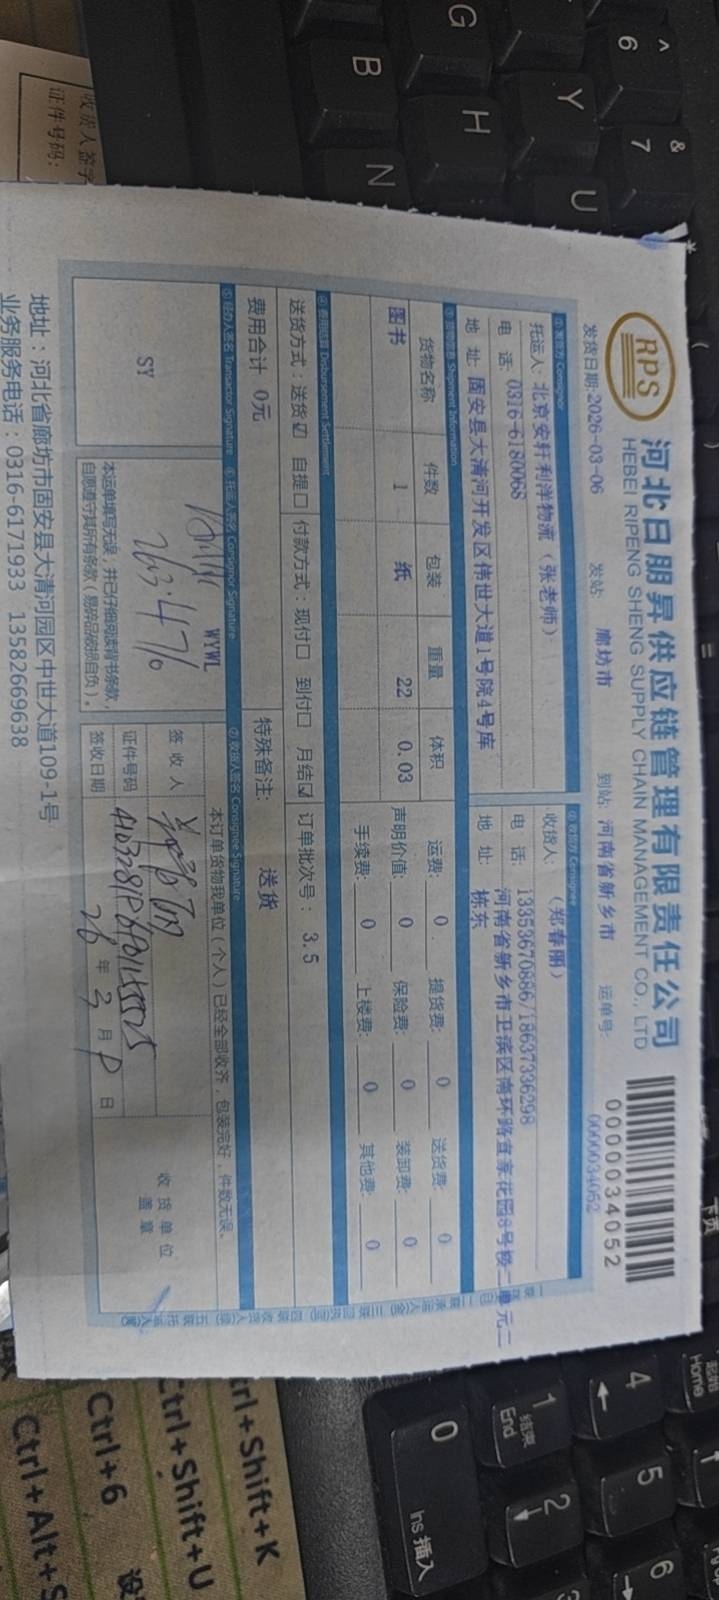 RPS
河北日朋昇供应链管理有限责任公司
HEBEI RIPENG SHENG SUPPLY CHAIN MANAGEMENT CO., LTD
0000034052
发货日期:2026-03-06 发站: 廊坊市 到站: 河南省新乡市 运单号: 0000034052
①发货方 Consignor ②收货方 Consignee
托运人: 北京安轩利洋物流（张老师） 收货人: （郑春丽）
电 话: 0316-6180068 电 话: 13353670886/18637336298
地 址: 固安县大清河开发区伟世大道1号院4号库 地 址: 河南省新乡市卫滨区南环路宜家花园8号楼二单元二
栋东
Shipment Information
货物名称 件数 包装 重量 体积 运费: 0 提货费: 0 送货费: 0
图书 1 纸 22 0.03 声明价值: 0 保险费: 0 装卸费: 0
手续费: 0 上楼费: 0 其他费: 0
④费用结算 Disbursement Settlement
送货方式：送货☑ 自提☐ 付款方式：现付☐ 到付☐ 月结☑ 订单批次号： 3.5
费用合计 0元 特殊备注: 送货
⑤经办人签名 Transactor Signature ⑥托运人签名 Consignor Signature ⑦收货人签名 Consignee Signature
SY
WYWL
本订单货物我单位（个人）已经全部收齐，包装完好，件数无误。
签 收 人
证件号码
签收日期 26 年 3 月 日
收货单位
盖章
本运单填写无误，并已仔细阅读背书条款，
自愿遵守其所有条款（易碎品破损自负）。
地址：河北省廊坊市固安县大清河园区中世大道109-1号
业务服务电话：0316-6171933 13582669638
收货人签字
证件号码:
^
6
&
7
Y
U
G
H
B
N
0
Ins 插入
1
结束
End
2
3
4
5
6
起始
Home
下页
Ctrl+Shift+K
Ctrl+Shift+U
Ctrl+6
Ctrl+Alt+S